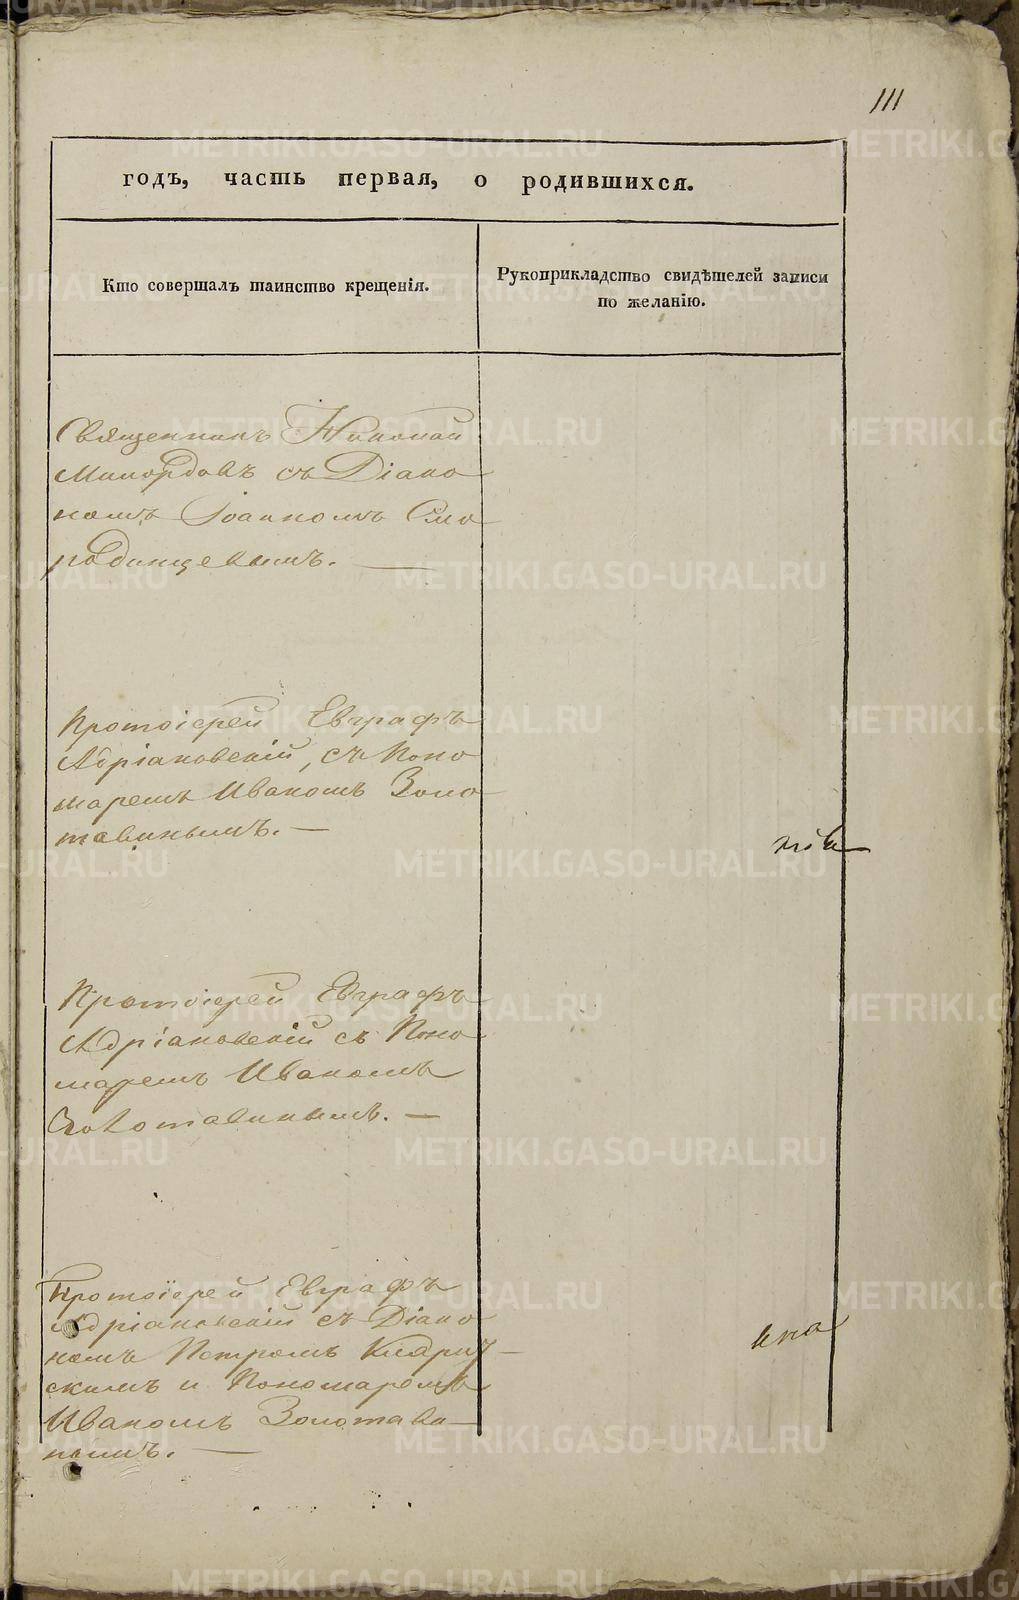 111
годъ, часть первая, о родившихся.
Кто совершалъ таинство крещенія.
Рукоприкладство свидѣтелей записи
по желанію.
Священникъ Николай
Милордовъ съ Діако
номъ Іоанномъ Смо
родинцевымъ. —
Протоіерей Евграфъ
Адріановскій, съ Поно
маремъ Иваномъ Золо
тавинымъ. —
Протоіерей Евграфъ
Адріановскій съ Поно
маремъ Иваномъ
Золотавинымъ. —
Протоіерей Евграфъ
Адріановскій съ Діако
номъ Петромъ
скимъ и Пономаремъ
Иваномъ Золотави—
нымъ. —
METRIKI.GASO-URAL.RU